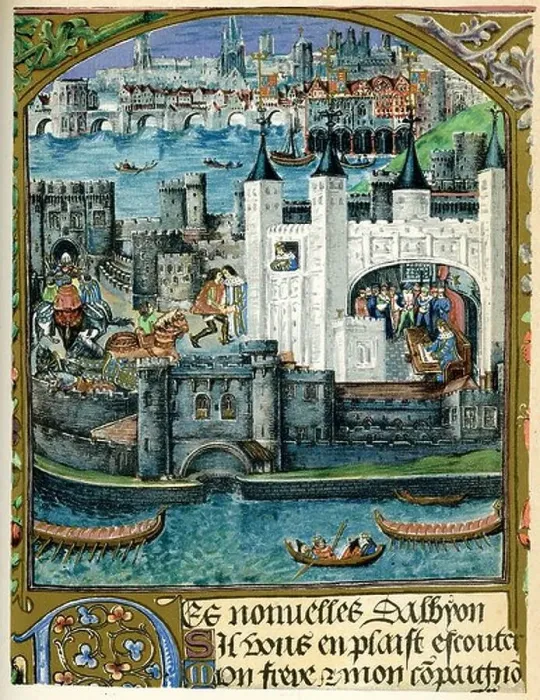 Es nouuelles dalbyon
Sil vous en plaist escouter
Mon frere & mon cõpaignõ